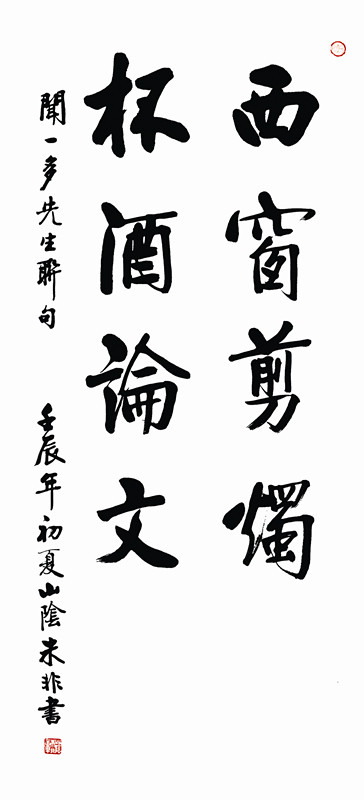 西窗剪燭
杯酒論文
聞一多先生聯句 壬辰年初夏山陰朱非書